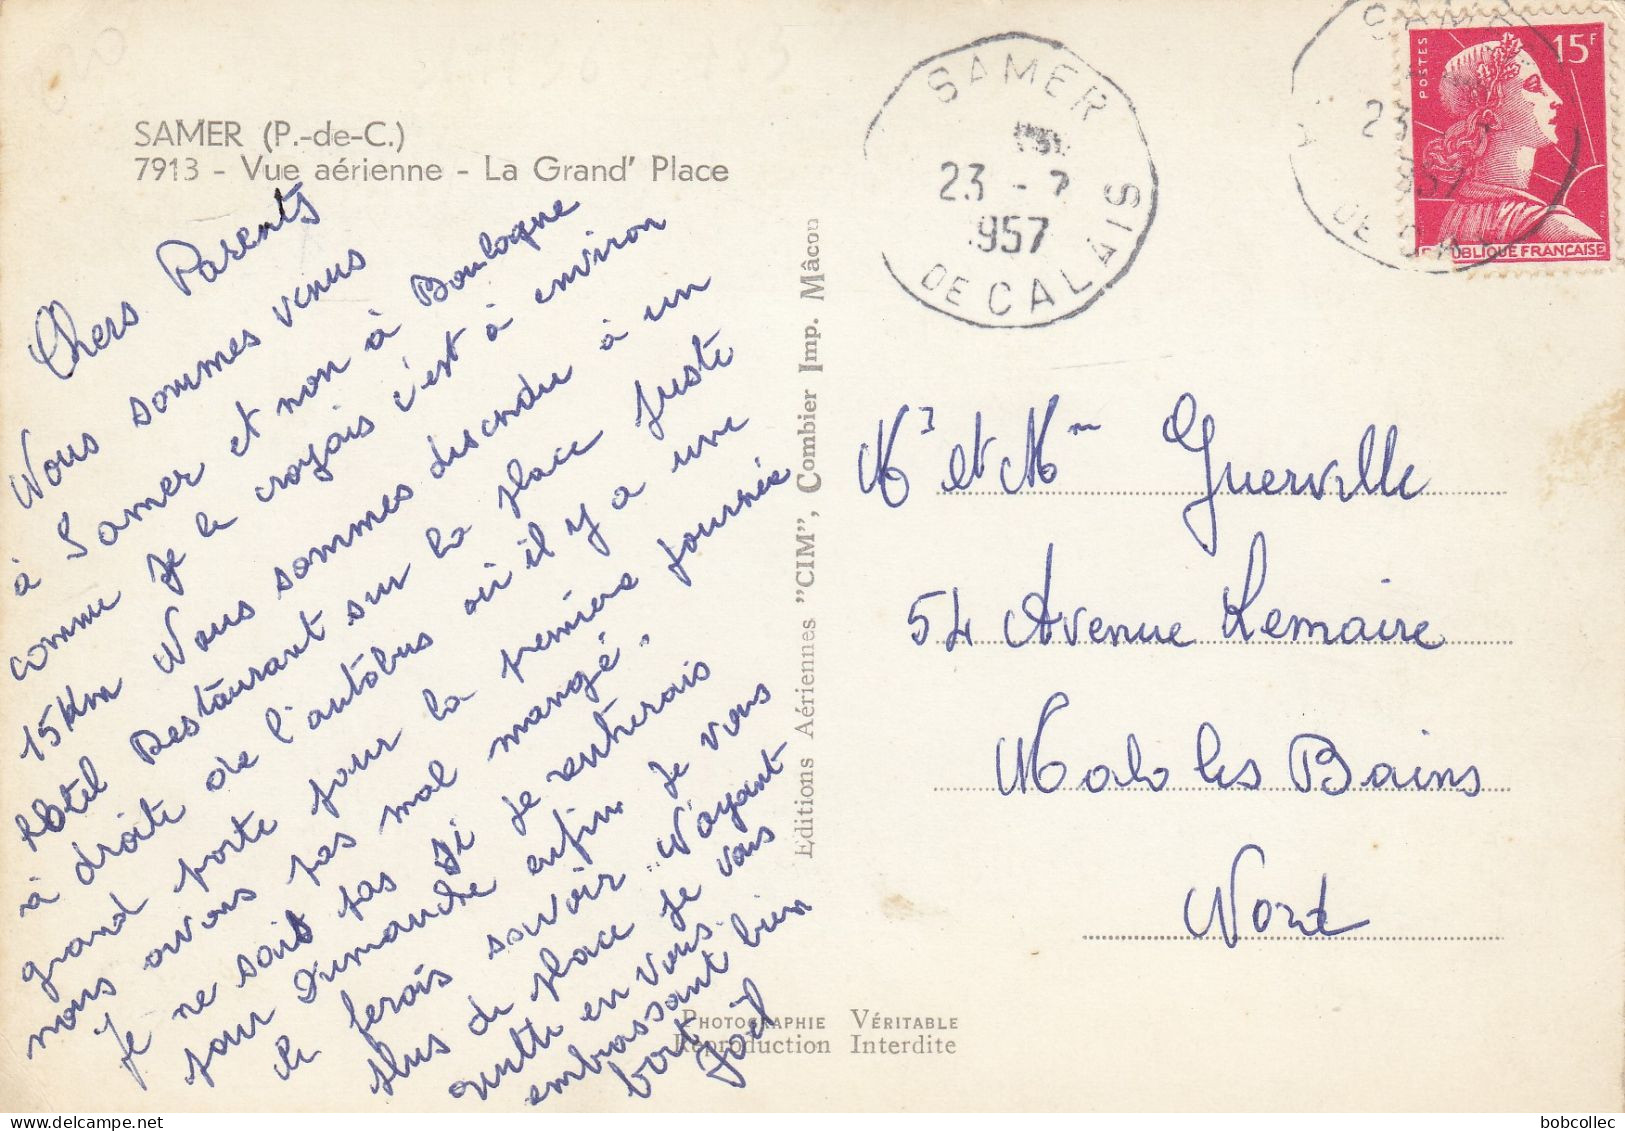 SAMER (P.-de-C.)
7913 - Vue aérienne - La Grand' Place
Chers Parents
Nous sommes venus
à Samer et non à Boulogne
comme je le croyais c'est à environ
15 Km Nous sommes descendu à un
Hôtel Restaurant sur la place juste
à droite de l'autobus où il y a une
grand porte pour la première journée
nous avons pas mal mangé.
Je ne sait pas si je rentrerais
pour dimanche enfin je vous
le ferais savoir. N'ayant
plus de place je vous
quitte en vous
embrassant bien
fort
Joël
Editions Aériennes "CIM", Combier Imp. Mâcon
PHOTOGRAPHIE VÉRITABLE
Reproduction Interdite
SAMER
23 - 7
1957
DE CALAIS
SAM
23
1957
DE CA
POSTES
15F
RÉPUBLIQUE FRANÇAISE
Mr et Mme Guerville
54 Avenue Lemaire
Malo les Bains
Nord
bobcollec